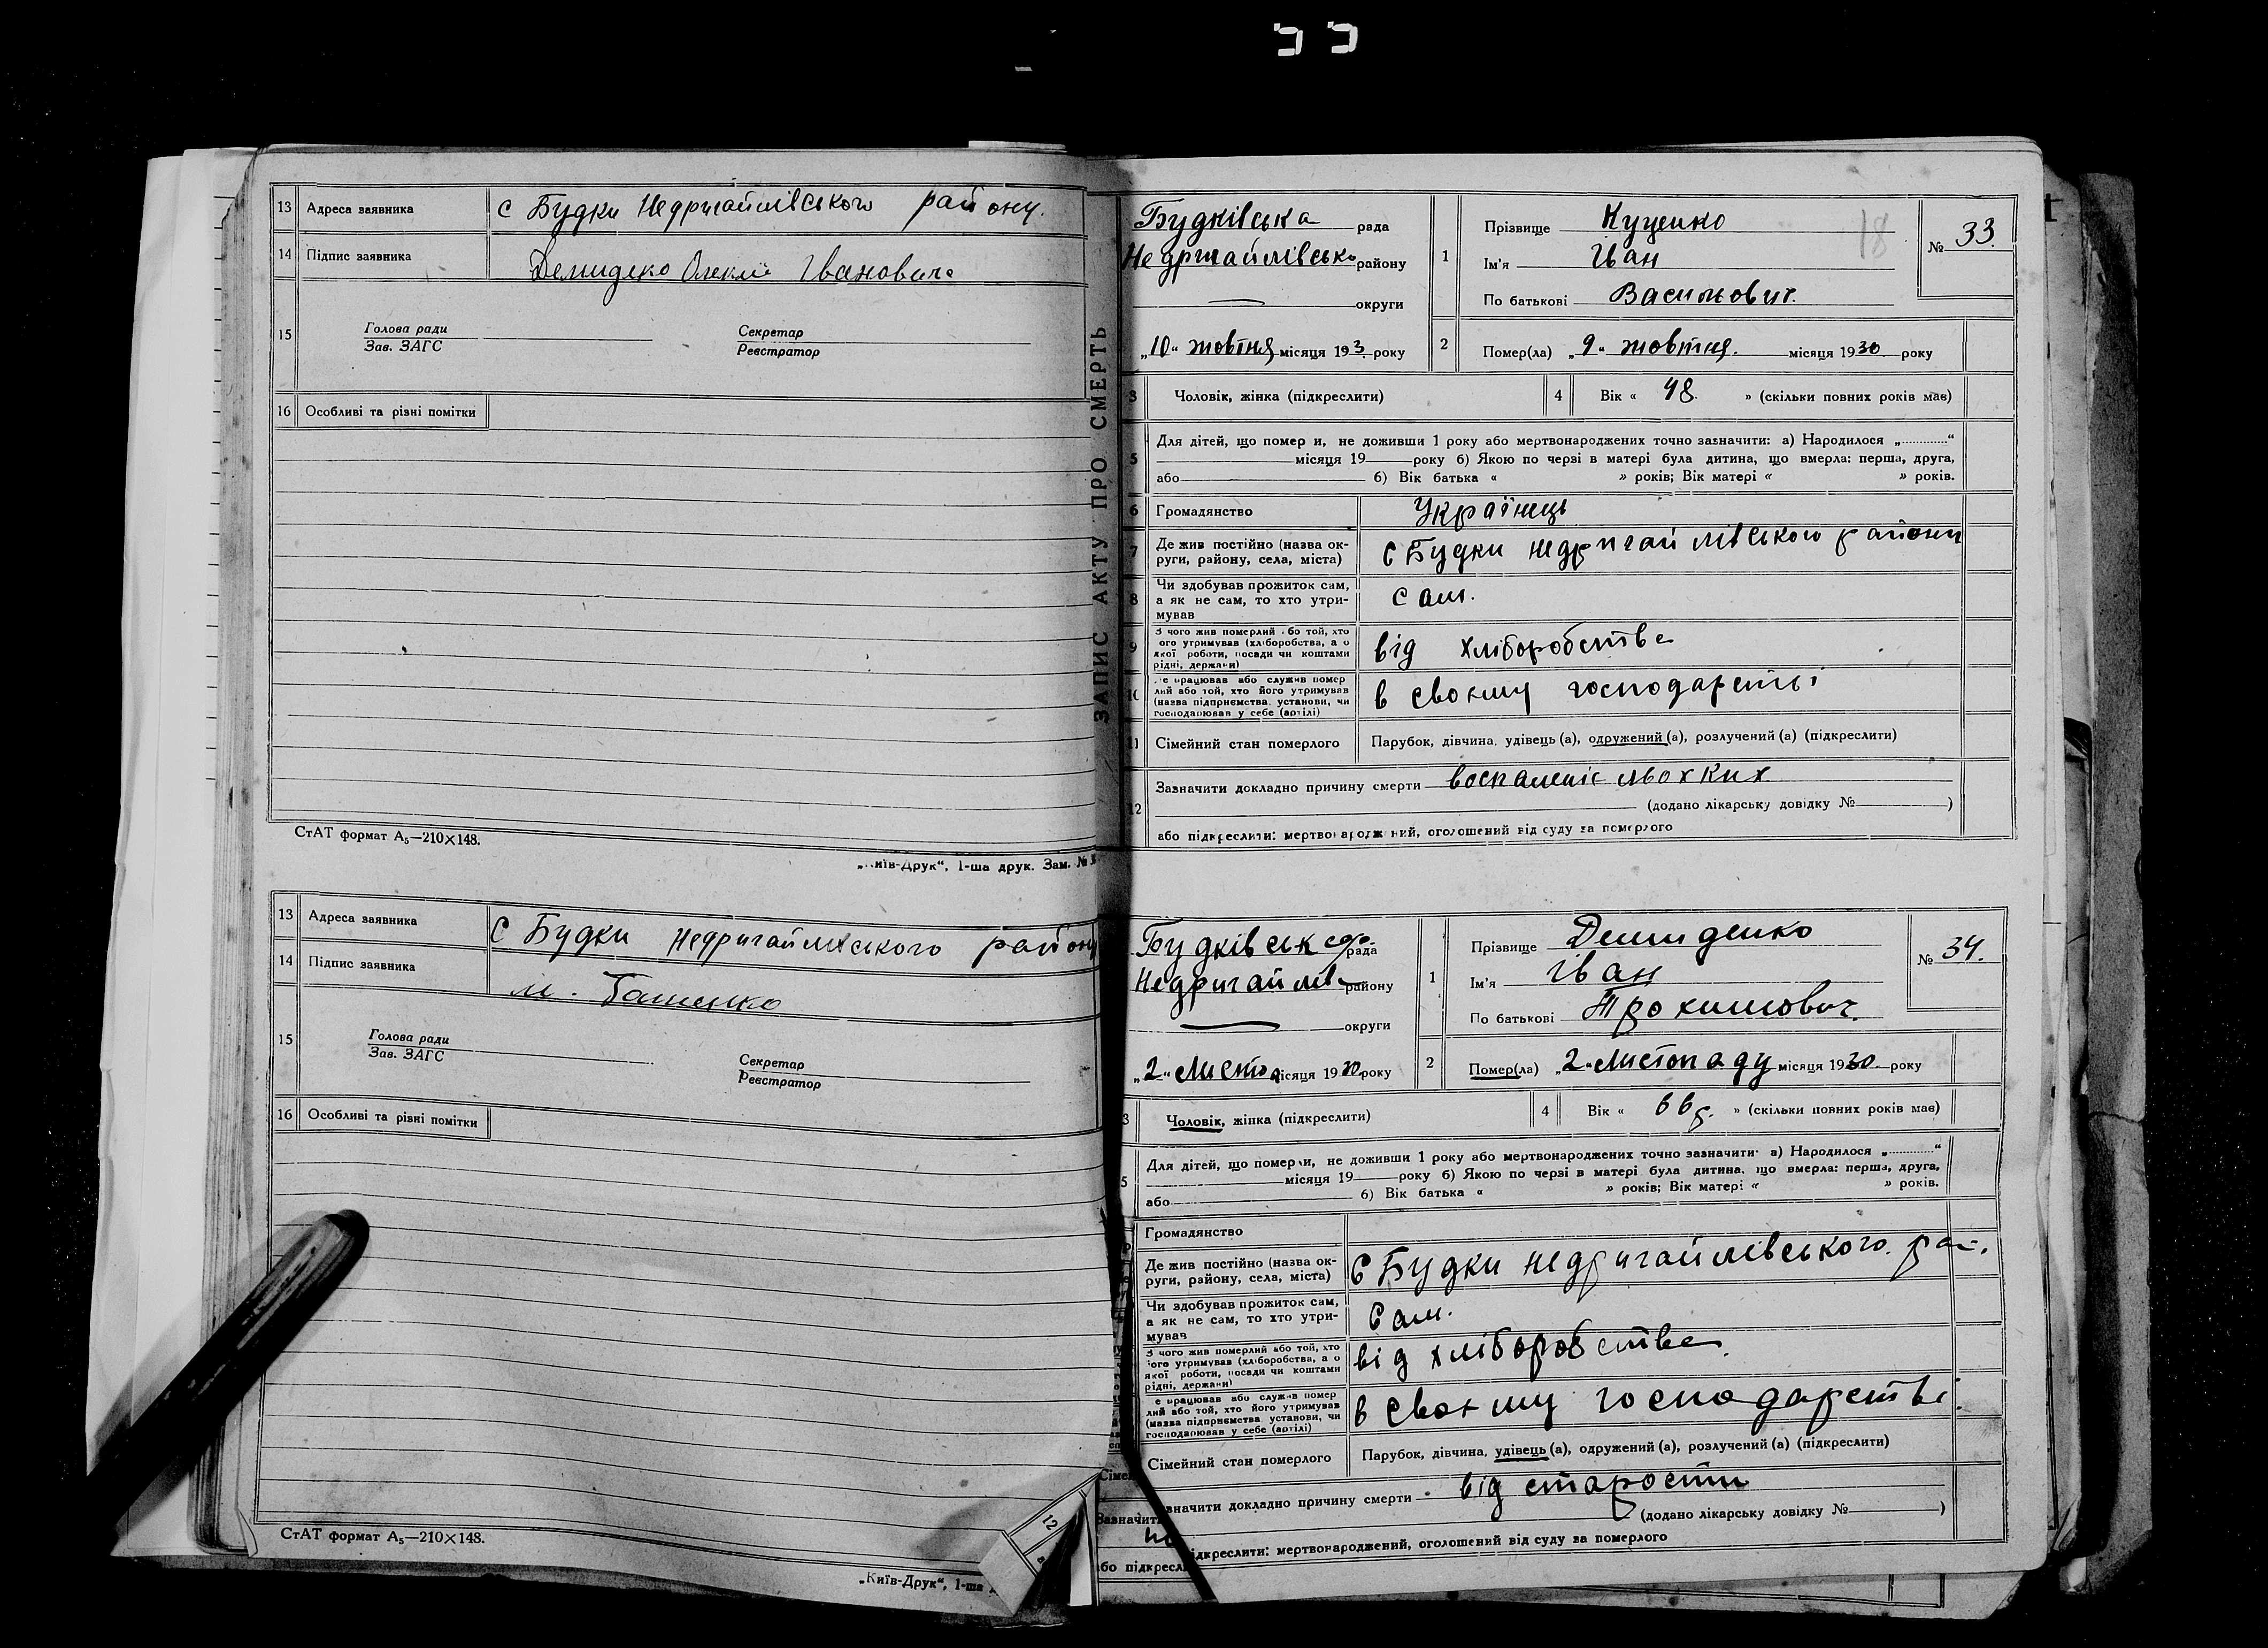 13 Адреса заявника с Будки Недригайлівського району.
14 Підпис заявника Демиденко Олексій Іванович
15 Голова ради Секретар
Зав. ЗАГС Реєстратор
16 Особливі та різні помітки
СтАТ формат А5—210×148.
„Київ-Друк“, 1-ша друк. Зам. №
13 Адреса заявника с Будки Недригайлівського району
14 Підпис заявника М.
15 Голова ради Секретар
Зав. ЗАГС Реєстратор
16 Особливі та різні помітки
СтАТ формат А5—210×148.
„Київ-Друк“, 1-ша
ЗАПИС АКТУ ПРО СМЕРТЬ
18
Будківська рада
Недригайлівськ району
— округи
„10“ жовтня місяця 193 року
1 Прізвище Куценко
Ім'я Іван
По батькові Васильович.
№ 33.
2 Помер(ла) „9“ жовтня. місяця 1930 року
3 Чоловік, жінка (підкреслити)
4 Вік « 48. » (скільки повних років мав)
5 Для дітей, що померли, не доживши 1 року або мертвонароджених точно зазначити: а) Народилося „..........“
місяця 19 року б) Якою по черзі в матері була дитина, що вмерла: перша, друга,
або б) Вік батька « » років; Вік матері « » років.
6 Громадянство Українець
7 Де жив постійно (назва ок-
руги, району, села, міста) с Будки Недригайлівського району
8 Чи здобував прожиток сам,
а як не сам, то хто утри-
мував сам.
9 З чого жив померлий або той, хто
його утримував (хліборобства, а о
якої роботи, посади чи коштами
рідні, держави) від хліборобства
10 Де працював або служив помер
лий або той, хто його утримував
(назва підприємства, установи, чи
господарював у себе (артілі) в своєму господарстві
11 Сімейний стан померлого Парубок, дівчина, удівець (а), одружений (а), розлучений (а) (підкреслити)
12 Зазначити докладно причину смерти воспаленіє льохких
(додано лікарську довідку № )
або підкреслити: мертвонароджений, оголошений від суду за померлого
Будківськ рада
Недригайлів району
— округи
„2“ Листоп місяця 1930 року
1 Прізвище Демиденко
Ім'я Іван
По батькові Трохимович.
№ 34.
2 Помер(ла) „2“ Листопаду місяця 1930 року
3 Чоловік, жінка (підкреслити)
4 Вік « 66 р. » (скільки повних років мав)
5 Для дітей, що померли, не доживши 1 року або мертвонароджених точно зазначити: а) Народилося „..........“
місяця 19 року б) Якою по черзі в матері була дитина, що вмерла: перша, друга,
або б) Вік батька « » років; Вік матері « » років.
Громадянство
Де жив постійно (назва ок-
руги, району, села, міста) с Будки Недригайлівського рай.
Чи здобував прожиток сам,
а як не сам, то хто утри-
мував сам.
З чого жив померлий або той, хто
його утримував (хліборобства, а о
якої роботи, посади чи коштами
рідні, держави) від хліборобства.
е працював або служив помер
лий або той, хто його утримував
(назва підприємства, установи, чи
господарював у себе (артілі) в своєму господарстві.
Сімейний стан померлого Парубок, дівчина, удівець (а), одружений (а), розлучений (а) (підкреслити)
значити докладно причину смерти від старости
(додано лікарську довідку № )
ідкреслити: мертвонароджений, оголошений від суду за померлого
12